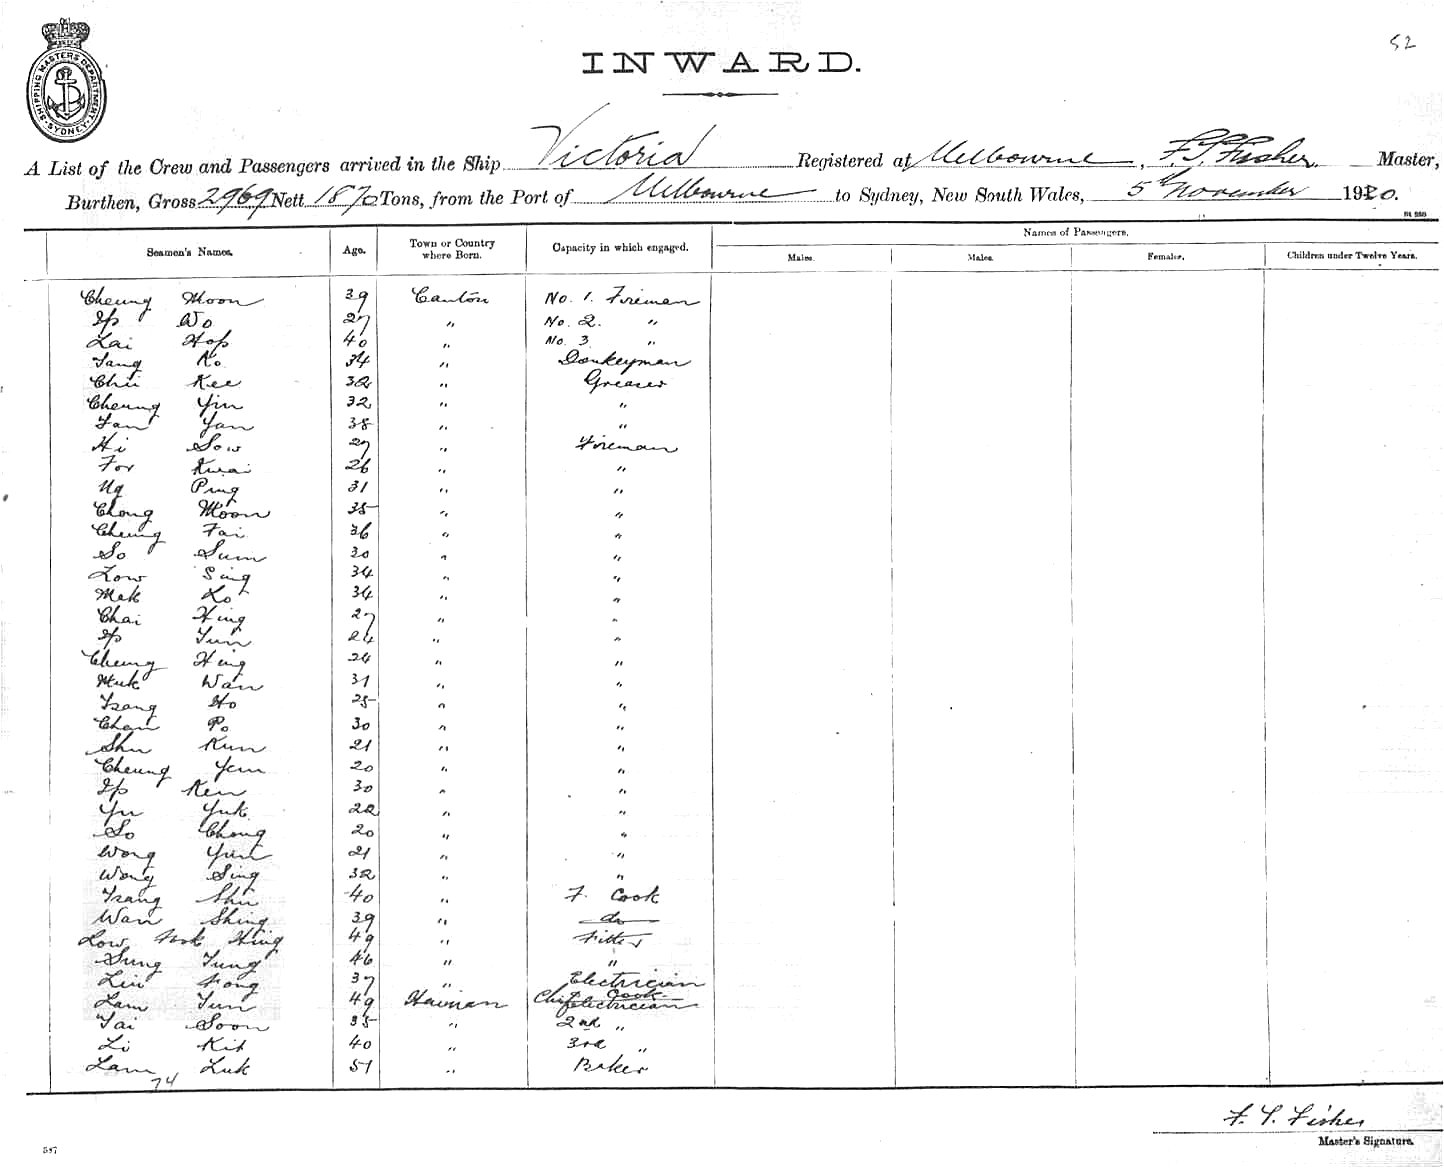 52
SHIPPING MASTERS DEPARTMENT. SYDNEY
INWARD.
A List of the Crew and Passengers arrived in the Ship Victoria Registered at Melbourne, Fisher. Master,
Burthen, Gross 2969 Nett 1870 Tons, from the Port of Melbourne to Sydney, New South Wales, 5th November 1920.
Names of Passengers.
Seamen's Names. Age. Town or Country where Born. Capacity in which engaged. Males. Males. Females. Children under Twelve Years.
Cheung Moon 39 Canton No. 1. Fireman
Ip Wo 27 " No. 2. "
Lai Hop 40 " No. 3 "
Tang Ko 34 " Donkeyman
Chu Kee 32 " Greaser
Cheung Yin 32 " "
Tam Yan 38 " "
Hi Sow 27 " Fireman
For Kwai 26 " "
Ng Ping 31 " "
Chong Moon 35 " "
Cheung Fai 36 " "
So Sum 30 " "
Low Sing 34 " "
Mak Lo 34 " "
Chai Hing 27 " "
Ip Tun 24 " "
Cheung Hing 24 " "
Muk Wan 31 " "
Tsang Ho 25 " "
Chan Po 30 " "
Shu Kun 21 " "
Cheung Yem 20 " "
Ip Ken 30 " "
Yu Yuk 22 " "
So Chong 20 " "
Wong Yim 21 " "
Wong Sing 32 " "
Tsang Shu 40 " F. Cook
Wan Shing 39 " do
Low Hing 49 " Fitter
Sung Tung 46 " "
Liu Fong 37 " Electrician
Lam Tun 49 Hainan Chief Cook Electrician
Tai Soon 35 " 2nd "
Li Kit 40 " 3rd "
Lam Luk 51 " Baker
74
F. T. Fisher
Master's Signature.
587